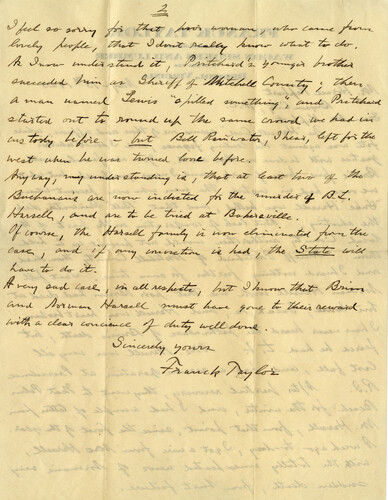 2
I feel so sorry for that poor woman, who came from
lovely people, that I don't really know what to do.
As I now understand it, Pritchard's younger brother
succeeded him as Sheriff of Mitchell County; then
a man named Lewis "spilled something" and Pritchard
started out to round up the same crowd we had in
custody before - but Bill Rainwater, I hear, left for the
west when he was turned loose before.
Anyway, my understanding is, that at least two of the
Buchanans are now indicted for the murder of B.L.
Harsell, and are to be tried at Bakersville.
Of course, the Harsell family is now eliminated from the
case, and if any conviction is had, the State will
have to do it.
A very sad case, in all respects, but I know that
and Norman Harsell must have gone to their reward
with a clear concience of duty well done.
Sincerely yours
Franck Taylor